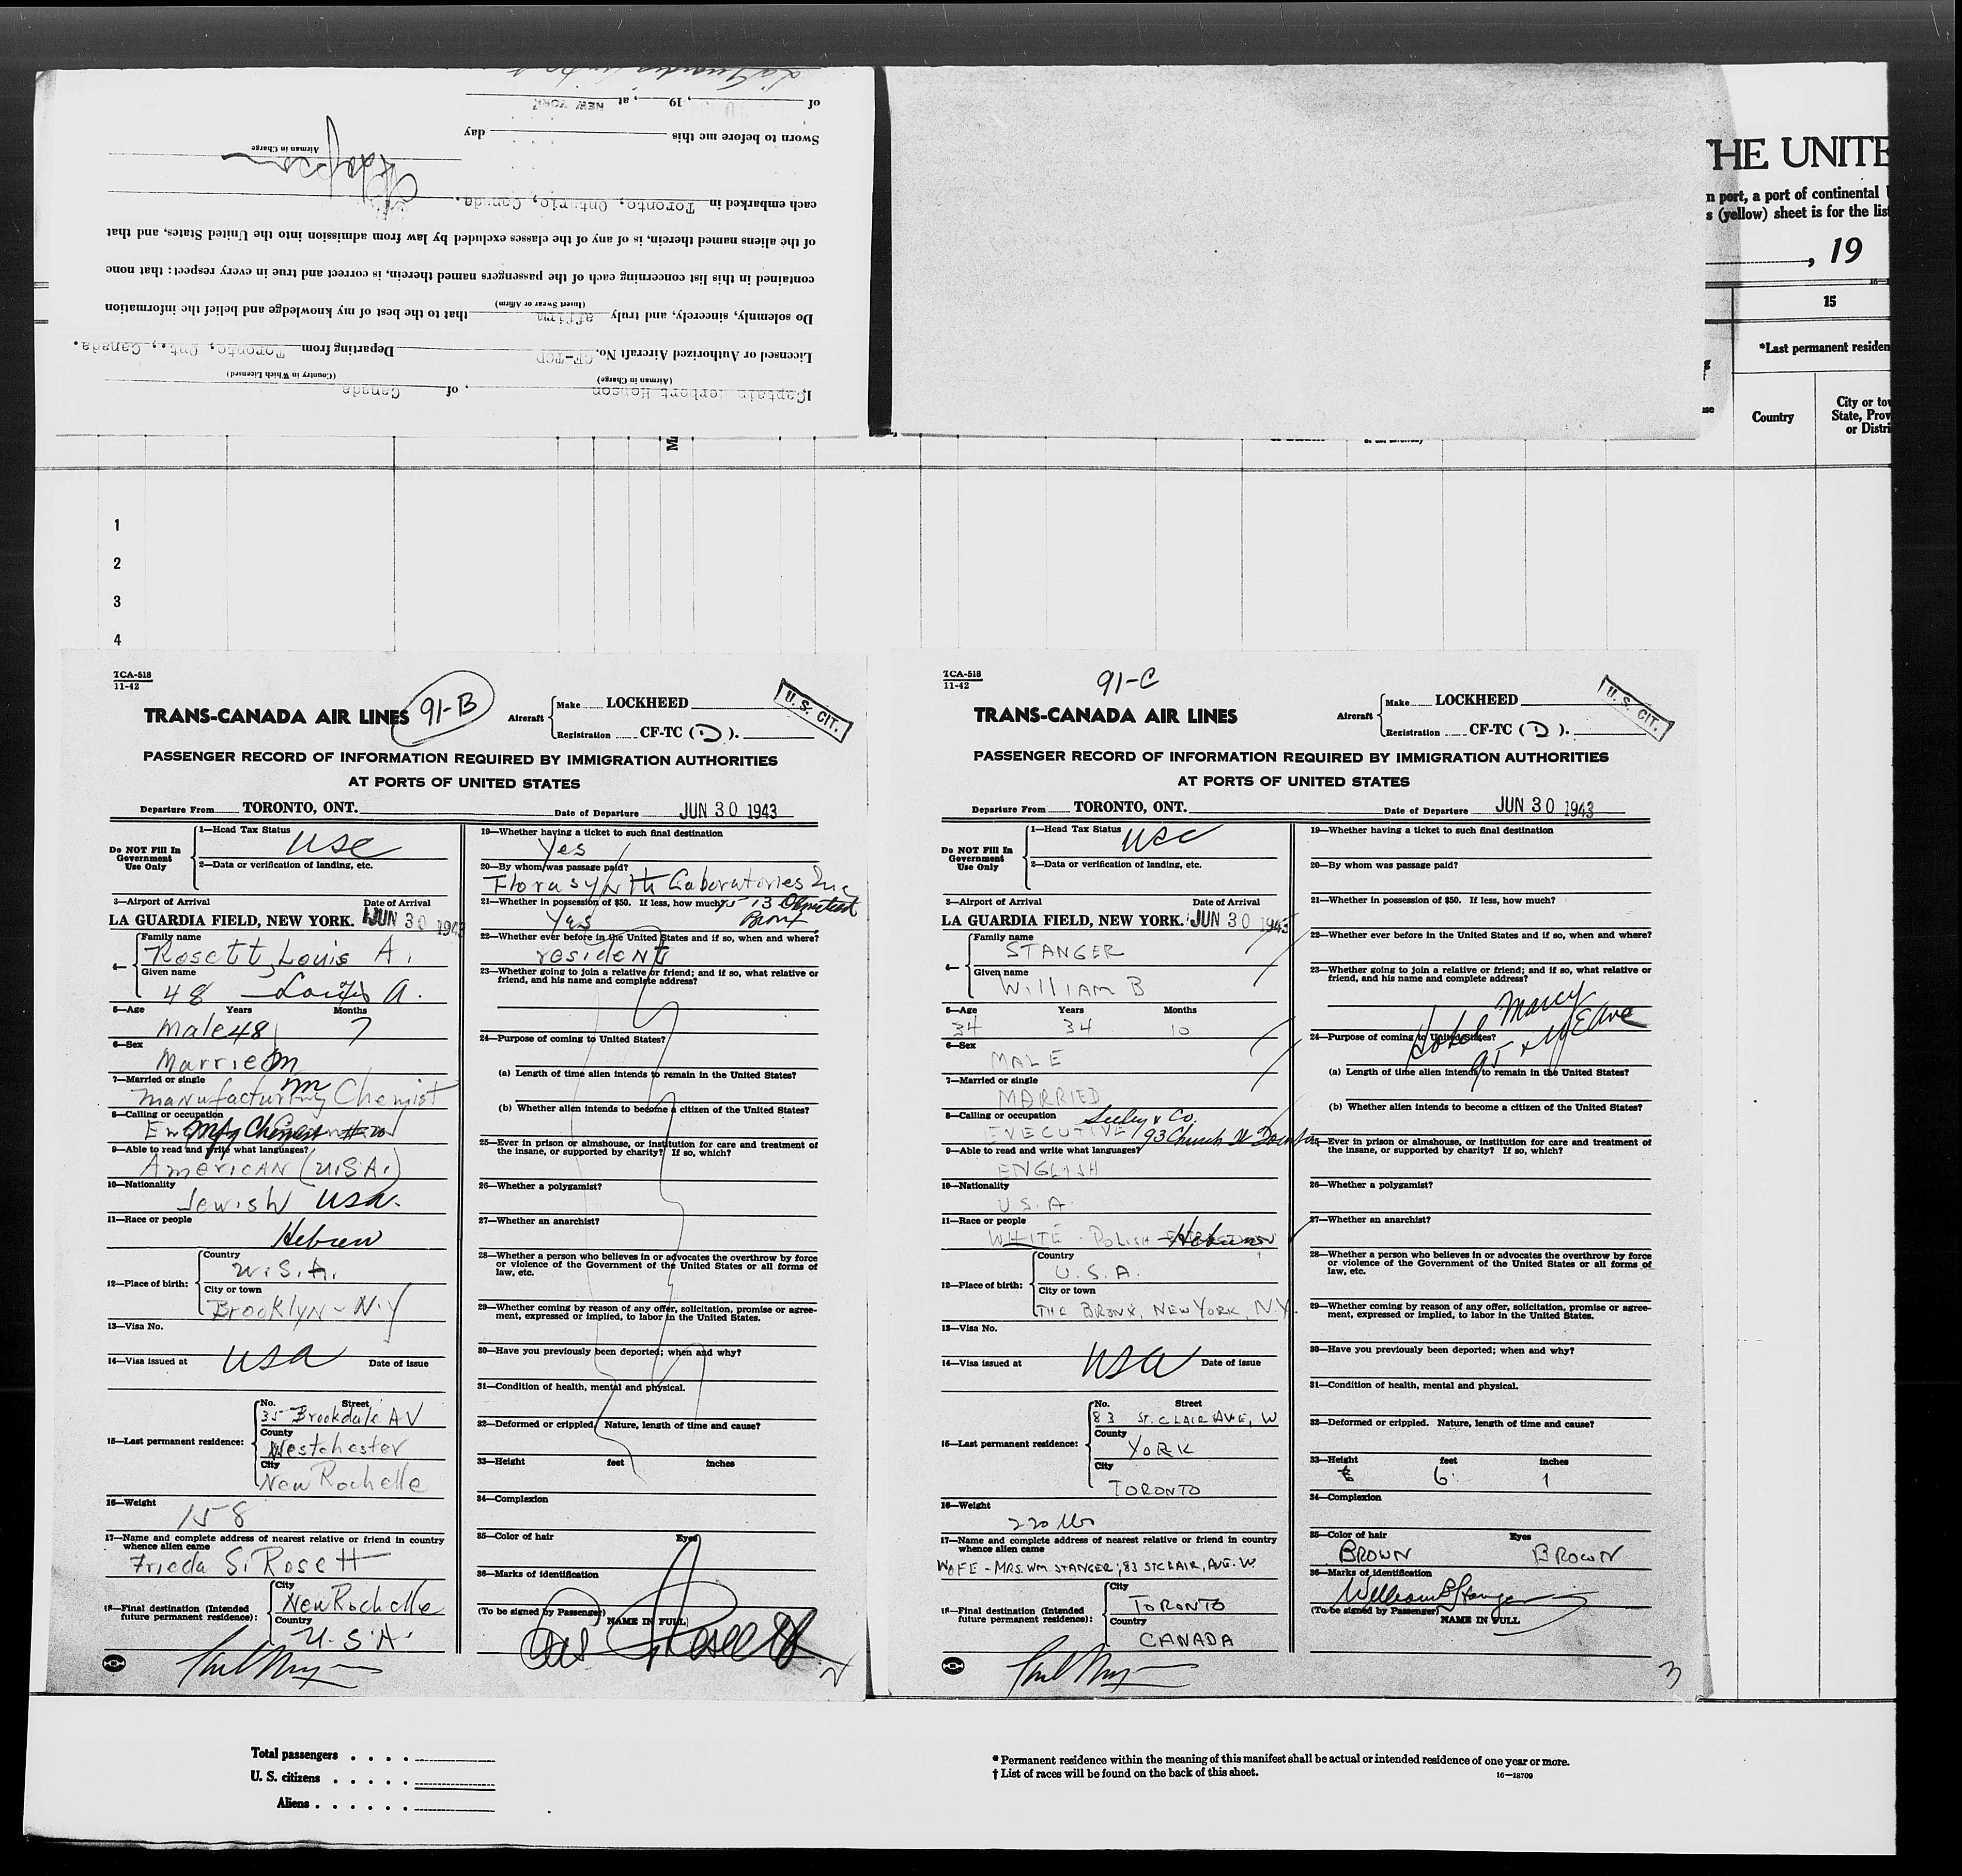 I, Captain Herbert Hopson, of Canada
(Airman in Charge) (Country in Which Licensed)
Licensed or Authorized Aircraft No. CF-TCD Departing from Toronto, Ont., Canada.
Do solemnly, sincerely, and truly affirm that to the best of my knowledge and belief the information
(Insert Swear or Affirm)
contained in this list concerning each of the passengers named therein, is correct and true in every respect; that none
of the aliens named therein, is of any of the classes excluded by law from admission into the United States, and that
each embarked in Toronto, Ontario, Canada.
Airman in Charge
Sworn to before me this day
of , 19 , at NEW YORK
THE UNITE
n port, a port of continental
s (yellow) sheet is for the list
, 19
15
*Last permanent residen
Country
City or tow
State, Prov
or Distri
1
2
3
4
TCA-518
11-42
91-B
TRANS-CANADA AIR LINES
Aircraft
Make LOCKHEED
Registration CF-TC (D).
U.S. CIT.
PASSENGER RECORD OF INFORMATION REQUIRED BY IMMIGRATION AUTHORITIES
AT PORTS OF UNITED STATES
Departure From TORONTO, ONT. Date of Departure JUN 30 1943
Do NOT Fill In Government Use Only
1—Head Tax Status
USC
2—Data or verification of landing, etc.
3—Airport of Arrival Date of Arrival
LA GUARDIA FIELD, NEW YORK. JUN 30 1943
4—
Family name
Rosett, Louis A.
Given name
48 Louis A.
5—Age Years Months
Male 48 7
6—Sex
Married M
7—Married or single
M
Manufacturing Chemist
8—Calling or occupation
Mfg Chemist
9—Able to read and write what languages?
American (U.S.A.)
10—Nationality
Jewish USA.
11—Race or people
Hebrew
12—Place of birth:
Country
U.S.A.
City or town
Brooklyn - N.Y
13—Visa No.
14—Visa issued at USA Date of issue
15—Last permanent residence:
No. Street
35 Brookdale AV
County
Westchester
City
New Rochelle
16—Weight
158
17—Name and complete address of nearest relative or friend in country
whence alien came
Frieda S. Rosett
18—Final destination (Intended
future permanent residence):
City
New Rochelle
Country
U.S.A.
19—Whether having a ticket to such final destination
Yes
20—By whom was passage paid?
Florasynth Laboratories Inc
21—Whether in possession of $50. If less, how much?
Olmstead
Yes Bronx
22—Whether ever before in the United States and if so, when and where?
resident
23—Whether going to join a relative or friend; and if so, what relative or
friend, and his name and complete address?
24—Purpose of coming to United States?
(a) Length of time alien intends to remain in the United States?
(b) Whether alien intends to become a citizen of the United States?
25—Ever in prison or almshouse, or institution for care and treatment of
the insane, or supported by charity? If so, which?
26—Whether a polygamist?
27—Whether an anarchist?
28—Whether a person who believes in or advocates the overthrow by force
or violence of the Government of the United States or all forms of
law, etc.
29—Whether coming by reason of any offer, solicitation, promise or agree-
ment, expressed or implied, to labor in the United States.
30—Have you previously been deported; when and why?
31—Condition of health, mental and physical.
32—Deformed or crippled. Nature, length of time and cause?
33—Height feet inches
34—Complexion
35—Color of hair Eyes
36—Marks of identification
(To be signed by Passenger) NAME IN FULL
2
TCA-518
11-42
91-C
TRANS-CANADA AIR LINES
Aircraft
Make LOCKHEED
Registration CF-TC (D).
U.S. CIT.
PASSENGER RECORD OF INFORMATION REQUIRED BY IMMIGRATION AUTHORITIES
AT PORTS OF UNITED STATES
Departure From TORONTO, ONT. Date of Departure JUN 30 1943
Do NOT Fill In Government Use Only
1—Head Tax Status
USC
2—Data or verification of landing, etc.
3—Airport of Arrival Date of Arrival
LA GUARDIA FIELD, NEW YORK. JUN 30 1943
4—
Family name
STANGER
Given name
WILLIAM B
5—Age Years Months
34 34 10
6—Sex
MALE
7—Married or single
MARRIED
8—Calling or occupation Seeley & Co.
EXECUTIVE 93 Church St
9—Able to read and write what languages?
ENGLISH
10—Nationality
U.S.A.
11—Race or people
WHITE - POLISH Hebrew
12—Place of birth:
Country
U.S.A.
City or town
THE BRONX, NEW YORK, N.Y.
13—Visa No.
14—Visa issued at USA Date of issue
15—Last permanent residence:
No. Street
83 ST. CLAIR AVE, W
County
YORK
City
TORONTO
16—Weight
220 lbs
17—Name and complete address of nearest relative or friend in country
whence alien came
WIFE - MRS. WM. STANGER; 83 ST CLAIR, AVE. W
18—Final destination (Intended
future permanent residence):
City
TORONTO
Country
CANADA
19—Whether having a ticket to such final destination
20—By whom was passage paid?
21—Whether in possession of $50. If less, how much?
22—Whether ever before in the United States and if so, when and where?
23—Whether going to join a relative or friend; and if so, what relative or
friend, and his name and complete address?
Hotel Marcy
95 & W E Ave
24—Purpose of coming to United States?
(a) Length of time alien intends to remain in the United States?
(b) Whether alien intends to become a citizen of the United States?
25—Ever in prison or almshouse, or institution for care and treatment of
the insane, or supported by charity? If so, which?
26—Whether a polygamist?
27—Whether an anarchist?
28—Whether a person who believes in or advocates the overthrow by force
or violence of the Government of the United States or all forms of
law, etc.
29—Whether coming by reason of any offer, solicitation, promise or agree-
ment, expressed or implied, to labor in the United States.
30—Have you previously been deported; when and why?
31—Condition of health, mental and physical.
32—Deformed or crippled. Nature, length of time and cause?
33—Height feet inches
6 1
34—Complexion
35—Color of hair Eyes
BROWN BROWN
36—Marks of identification
William B Stanger
(To be signed by Passenger) NAME IN FULL
3
Total passengers . . . .
U. S. citizens . . . . .
Aliens . . . . . .
* Permanent residence within the meaning of this manifest shall be actual or intended residence of one year or more.
† List of races will be found on the back of this sheet. 16—18709